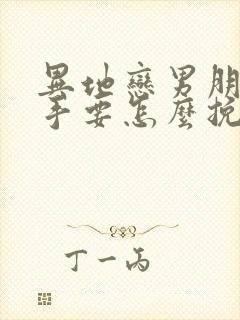 異地戀男朋
手要怎麼挽
丁一丙